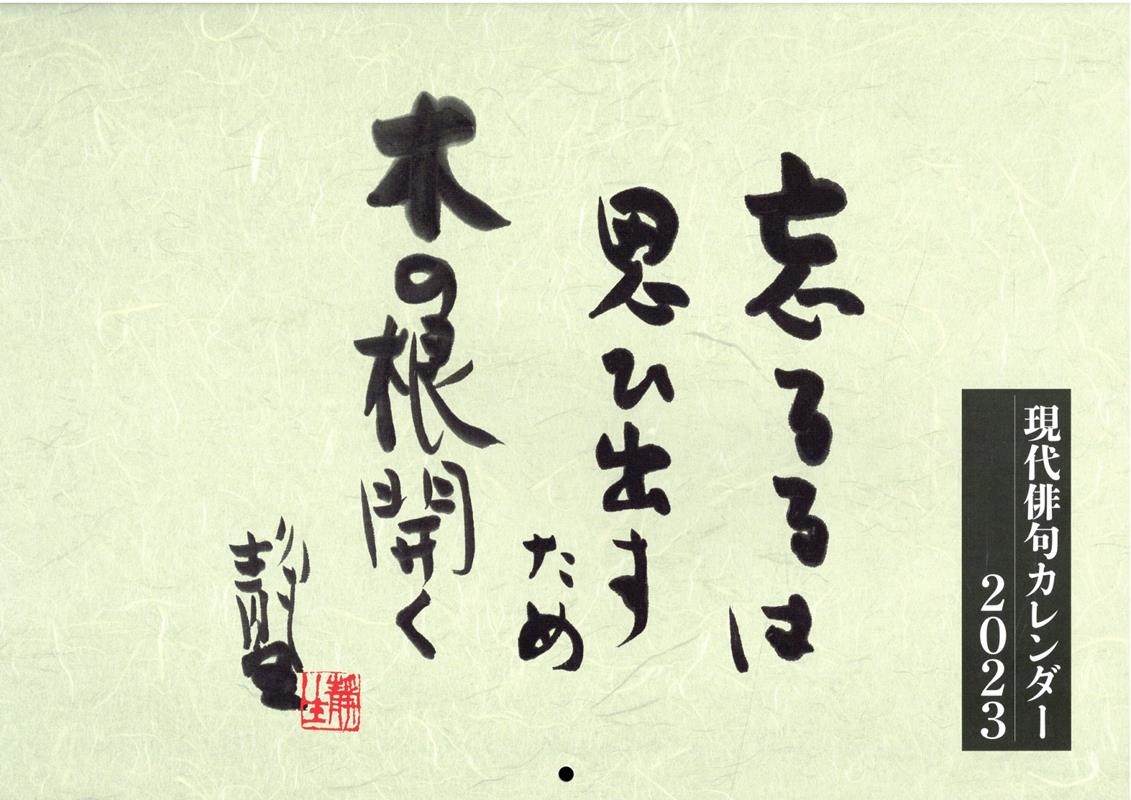 現代俳句カレンダー
2023
忘るるは
思ひ出す
ため
木の根開く
靜生
靜生